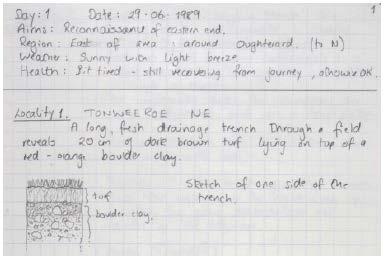 1
Day: 1 Date: 29-06-1989
Aims: Reconnaissance of eastern end.
Region: East of area: around Oughterard. (to N)
Weather: Sunny with light breeze.
Health: Bit tired - still recovering from journey, otherwise OK.
Locality 1. TONWEEROE NE
A long, fresh drainage trench through a field
reveals 20 cm of dark brown turf lying on top of a
red-orange boulder clay.
Sketch of one side of the
trench.
turf
boulder clay.